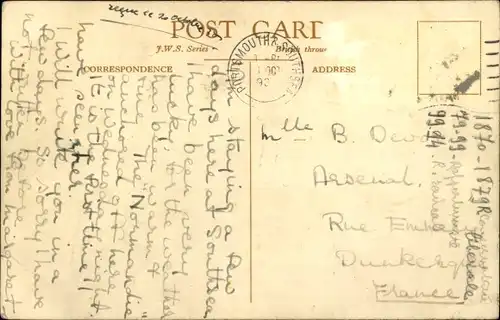 reçue le 20 octobre
POST CARD
J.W.S. Series
British throw
CORRESPONDENCE
ADDRESS
PORTSMOUTH & SOUTHSEA
I am staying a few
days here at Southsea
I have been very
lucky, for the weather
has been warm &
fine. The "Normandie"
anchored off here
on Wednesday night.
It is the first time I
have seen her.
I will write to you in a
few days. So sorry I have
not written before
With love from Margaret
Mlle B.
Arsenal,
Rue
Dunkerque
France
1870-1879
79-99
99